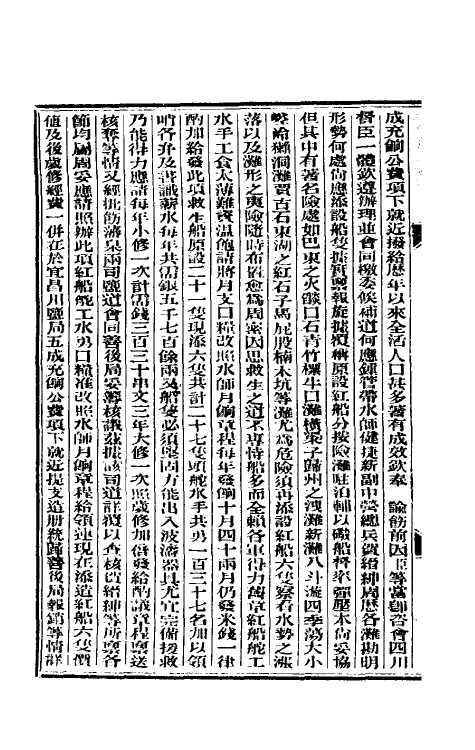 成充餉公費項下就近撥給歷年以來全活人口甚多著有成效欽奉　諭飭前因臣等當即咨會四川
督臣一體欽遵辦理並會同檄委候補道何應鍾管帶水師健捷新副中營總兵賀縉紳周歷各灘勘明
形勢何處尚應添設船隻據實稟報旋據覆稱原設紅船分按險灘駐泊輔以礮船梭巡彈壓本尚妥協
但其中有著名險處如巴東之火燄口石青竹標牛口灘橫梁子歸州之洩灘新灘八斗流四季蕩大小
洞灘賈古石東湖之紅石子馬屁股楠木坑等灘尤為危險須再添設紅船六隻察看水勢之漲
落以及灘形之夷險隨時布置愈為周密因思救生之道不專恃船多而全賴各軍得力舊章紅船舵工
水手工食太薄難資溫飽請將月支口糧改照水師月餉章程每年發餉十月四十兩月仍發米錢一律
酌加給發此項救生船原設二十一隻現添六隻共計二十七隻頭舵水手共勇一百三十七名加以領
哨各弁及書識薪水每年共需銀五千七百餘兩又船隻必須堅固方能出入波濤器具尤宜完備援救
乃能得力應請每年小修一次計需錢三百三十串文三年大修一次照歲修加倍發給酌議章程稟送
核奪等情又經批飭藩臬兩司鹽道會同善後局妥籌核議茲據該司道詳覆以查核賀縉紳等所稟各
節均屬周妥應請照辦此項紅船舵工水勇口糧准改照水師月餉章程給領連現在添造紅船六隻價
值及後歲修經費一併在於宜昌川鹽局五成充餉公費項下就近提支造册統歸善後局報銷等情詳